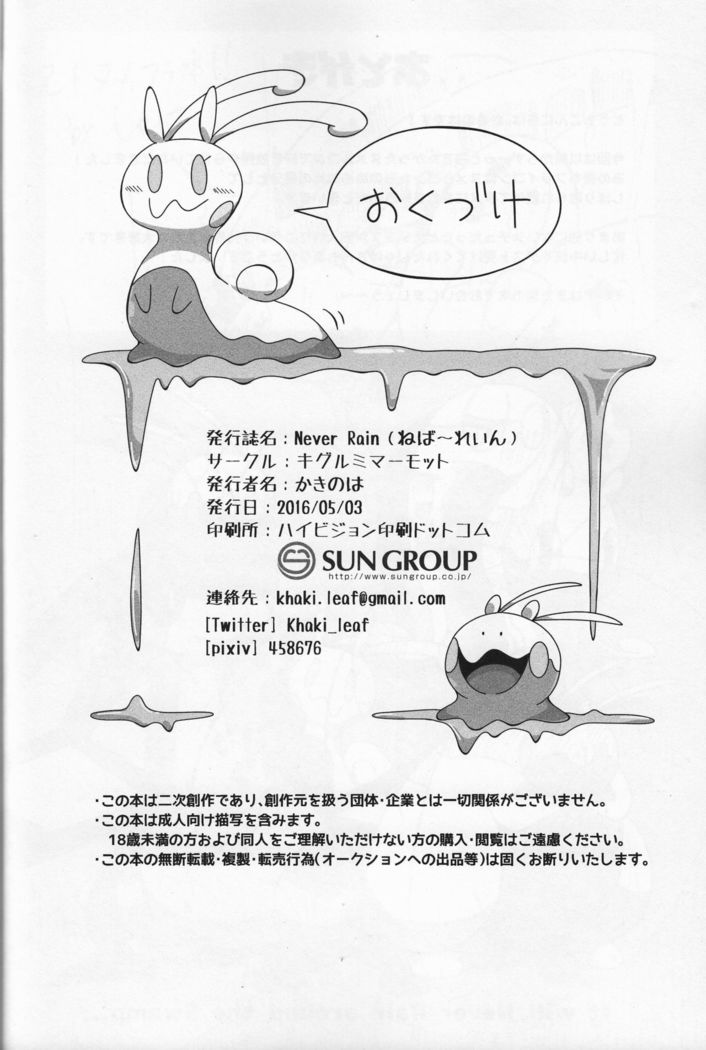 おくづけ
発行誌名：Never Rain（ねば～れいん）
サークル：キグルミマーモット
発行者名：かきのは
発行日：2016/05/03
印刷所：ハイビジョン印刷ドットコム
SUN GROUP
http://www.sungroup.co.jp/
連絡先：khaki.leaf@gmail.com
[Twitter] Khaki_leaf
[pixiv] 458676
・この本は二次創作であり、創作元を扱う団体・企業とは一切関係がございません。
・この本は成人向け描写を含みます。
18歳未満の方および同人をご理解いただけない方の購入・閲覧はご遠慮ください。
・この本の無断転載・複製・転売行為(オークションへの出品等)は固くお断りいたします。